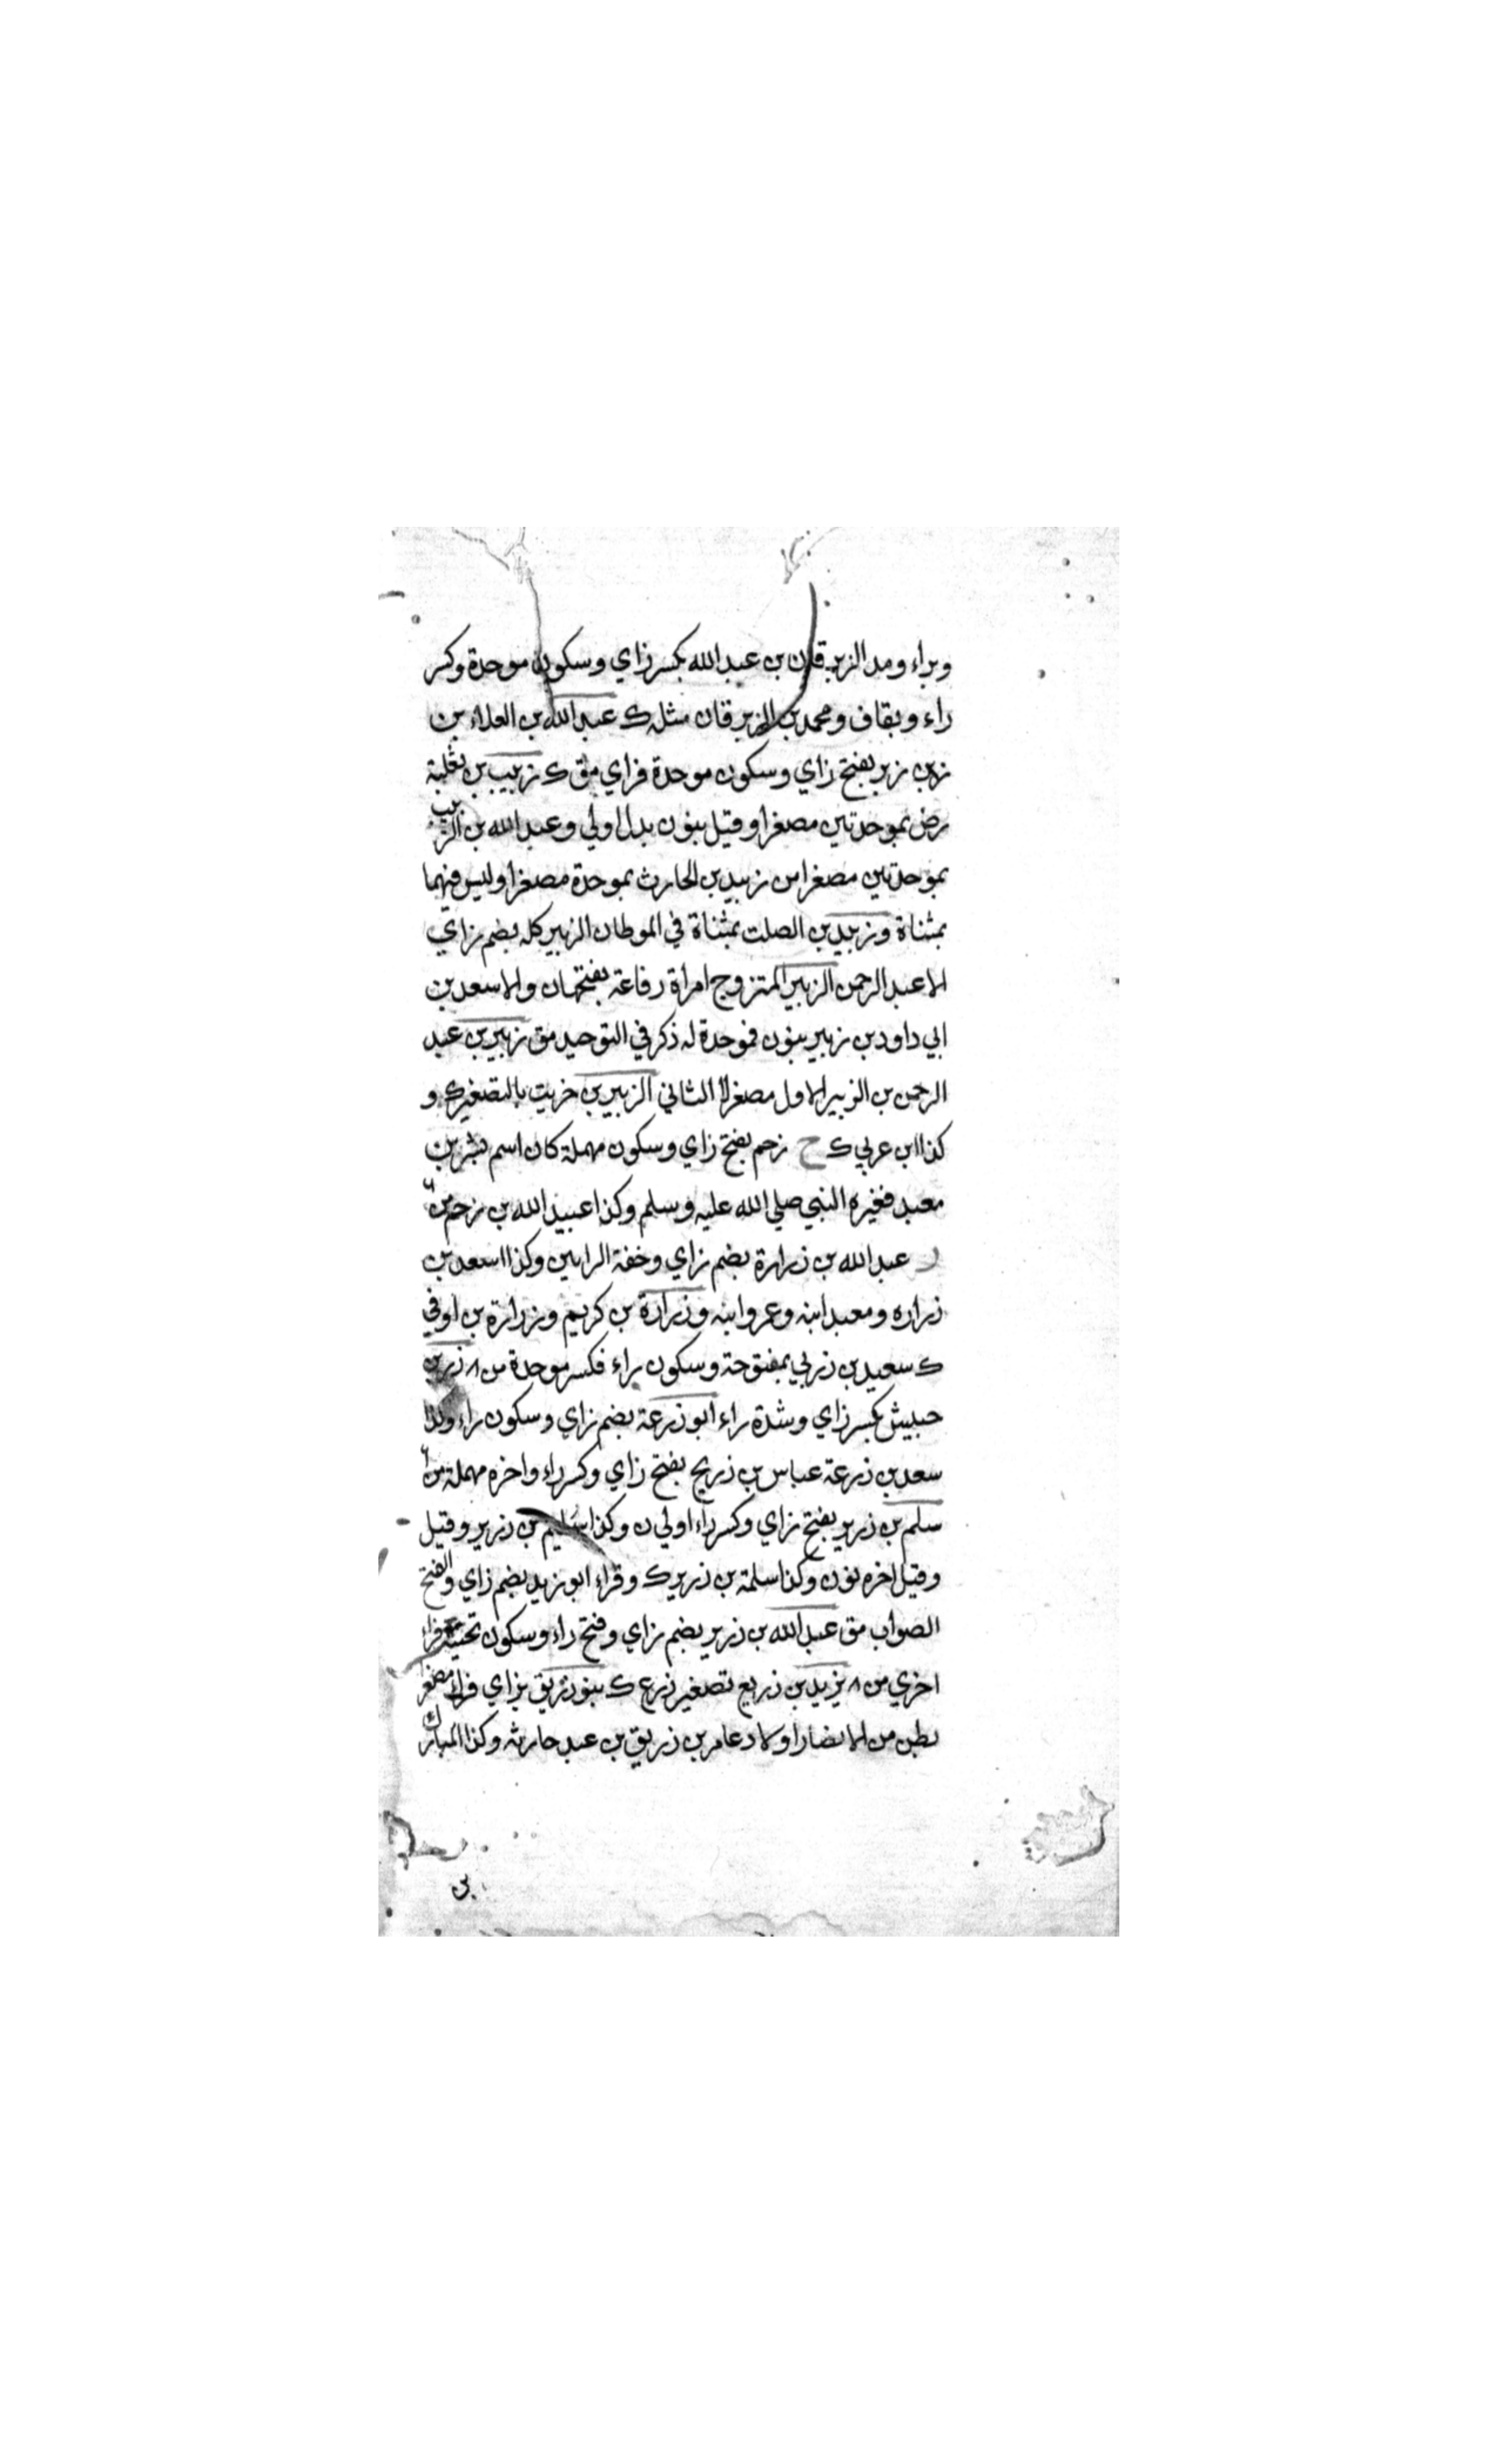 وبراء ومد الزبرقان بن عبد الله بكسر زاي وسكون موحدة وكسر
راء وبقاف ومحمد بن الزبرقان مثله ك عبد الله بن العلاء بن
زبن زبر بفتح زاي وسكون موحدة فزاي مق ك زبيب بن ثعلبة
رض بموحدتين مصغرا وقيل بنون بدل اولي وعبد الله بن الزبيب
بموحدتين مصغرا من زبيد بن الحارث بموحدة مصغرا وليس فيهما
بمثناة وزبيد بن الصلت بمثناة في الموطا ن الزبير كله بضم زاي
الا عبد الرحمن الزبير المتزوج امراة رفاعة بفتحها ن والا سعد بن
ابي داود بن زبير بنون فموحدة له ذكر في التوحيد مق زبير بن عبد
الرحمن بن الزبير الاول مصغرا الثاني الزبير بن خريت بالتصغير ك و
كذا ابن عربي ك ح زحم بفتح زاي وسكون مهملة كان اسم بشر بن
معبد فغيره النبي صلي الله عليه وسلم وكذا عبيد الله بن زحم من
ر عبد الله بن زرارة بضم زاي وخفة الرايين وكذا اسعد بن
زراره ومعبد ابنه وعمرو ابنه وزرارة بن كريم وزرارة بن اوفي
ك سعيد بن زربي بمفتوحة وسكون راء فكسر موحدة من ۸ زر بن
حبيش بكسر زاي وشدة راء ابو زرعة بضم زاي وسكون راء وكذا
سعد بن زرعة عباس بن زريح بفتح زاي وكسر راء واخره مهملة من
سلم بن زرير بفتح زاي وكسر راء اولي ن وكذا سليم بن زرير وقيل
وقيل اخره نون وكذا سلمة بن زرير ك وقراء ابو زيد بضم زاي والفتح
الصواب مق عبد الله بن زرير بضم زاي وفتح راء وسكون تحتية فراء
اخري من ۸ يزيد بن زريع تصغير زرع ك بنو زريق بزاي فراء مصغرا
بطن من الانصار اولاد عامر بن زريق بن عبد حارثه وكذا المبارك
بن